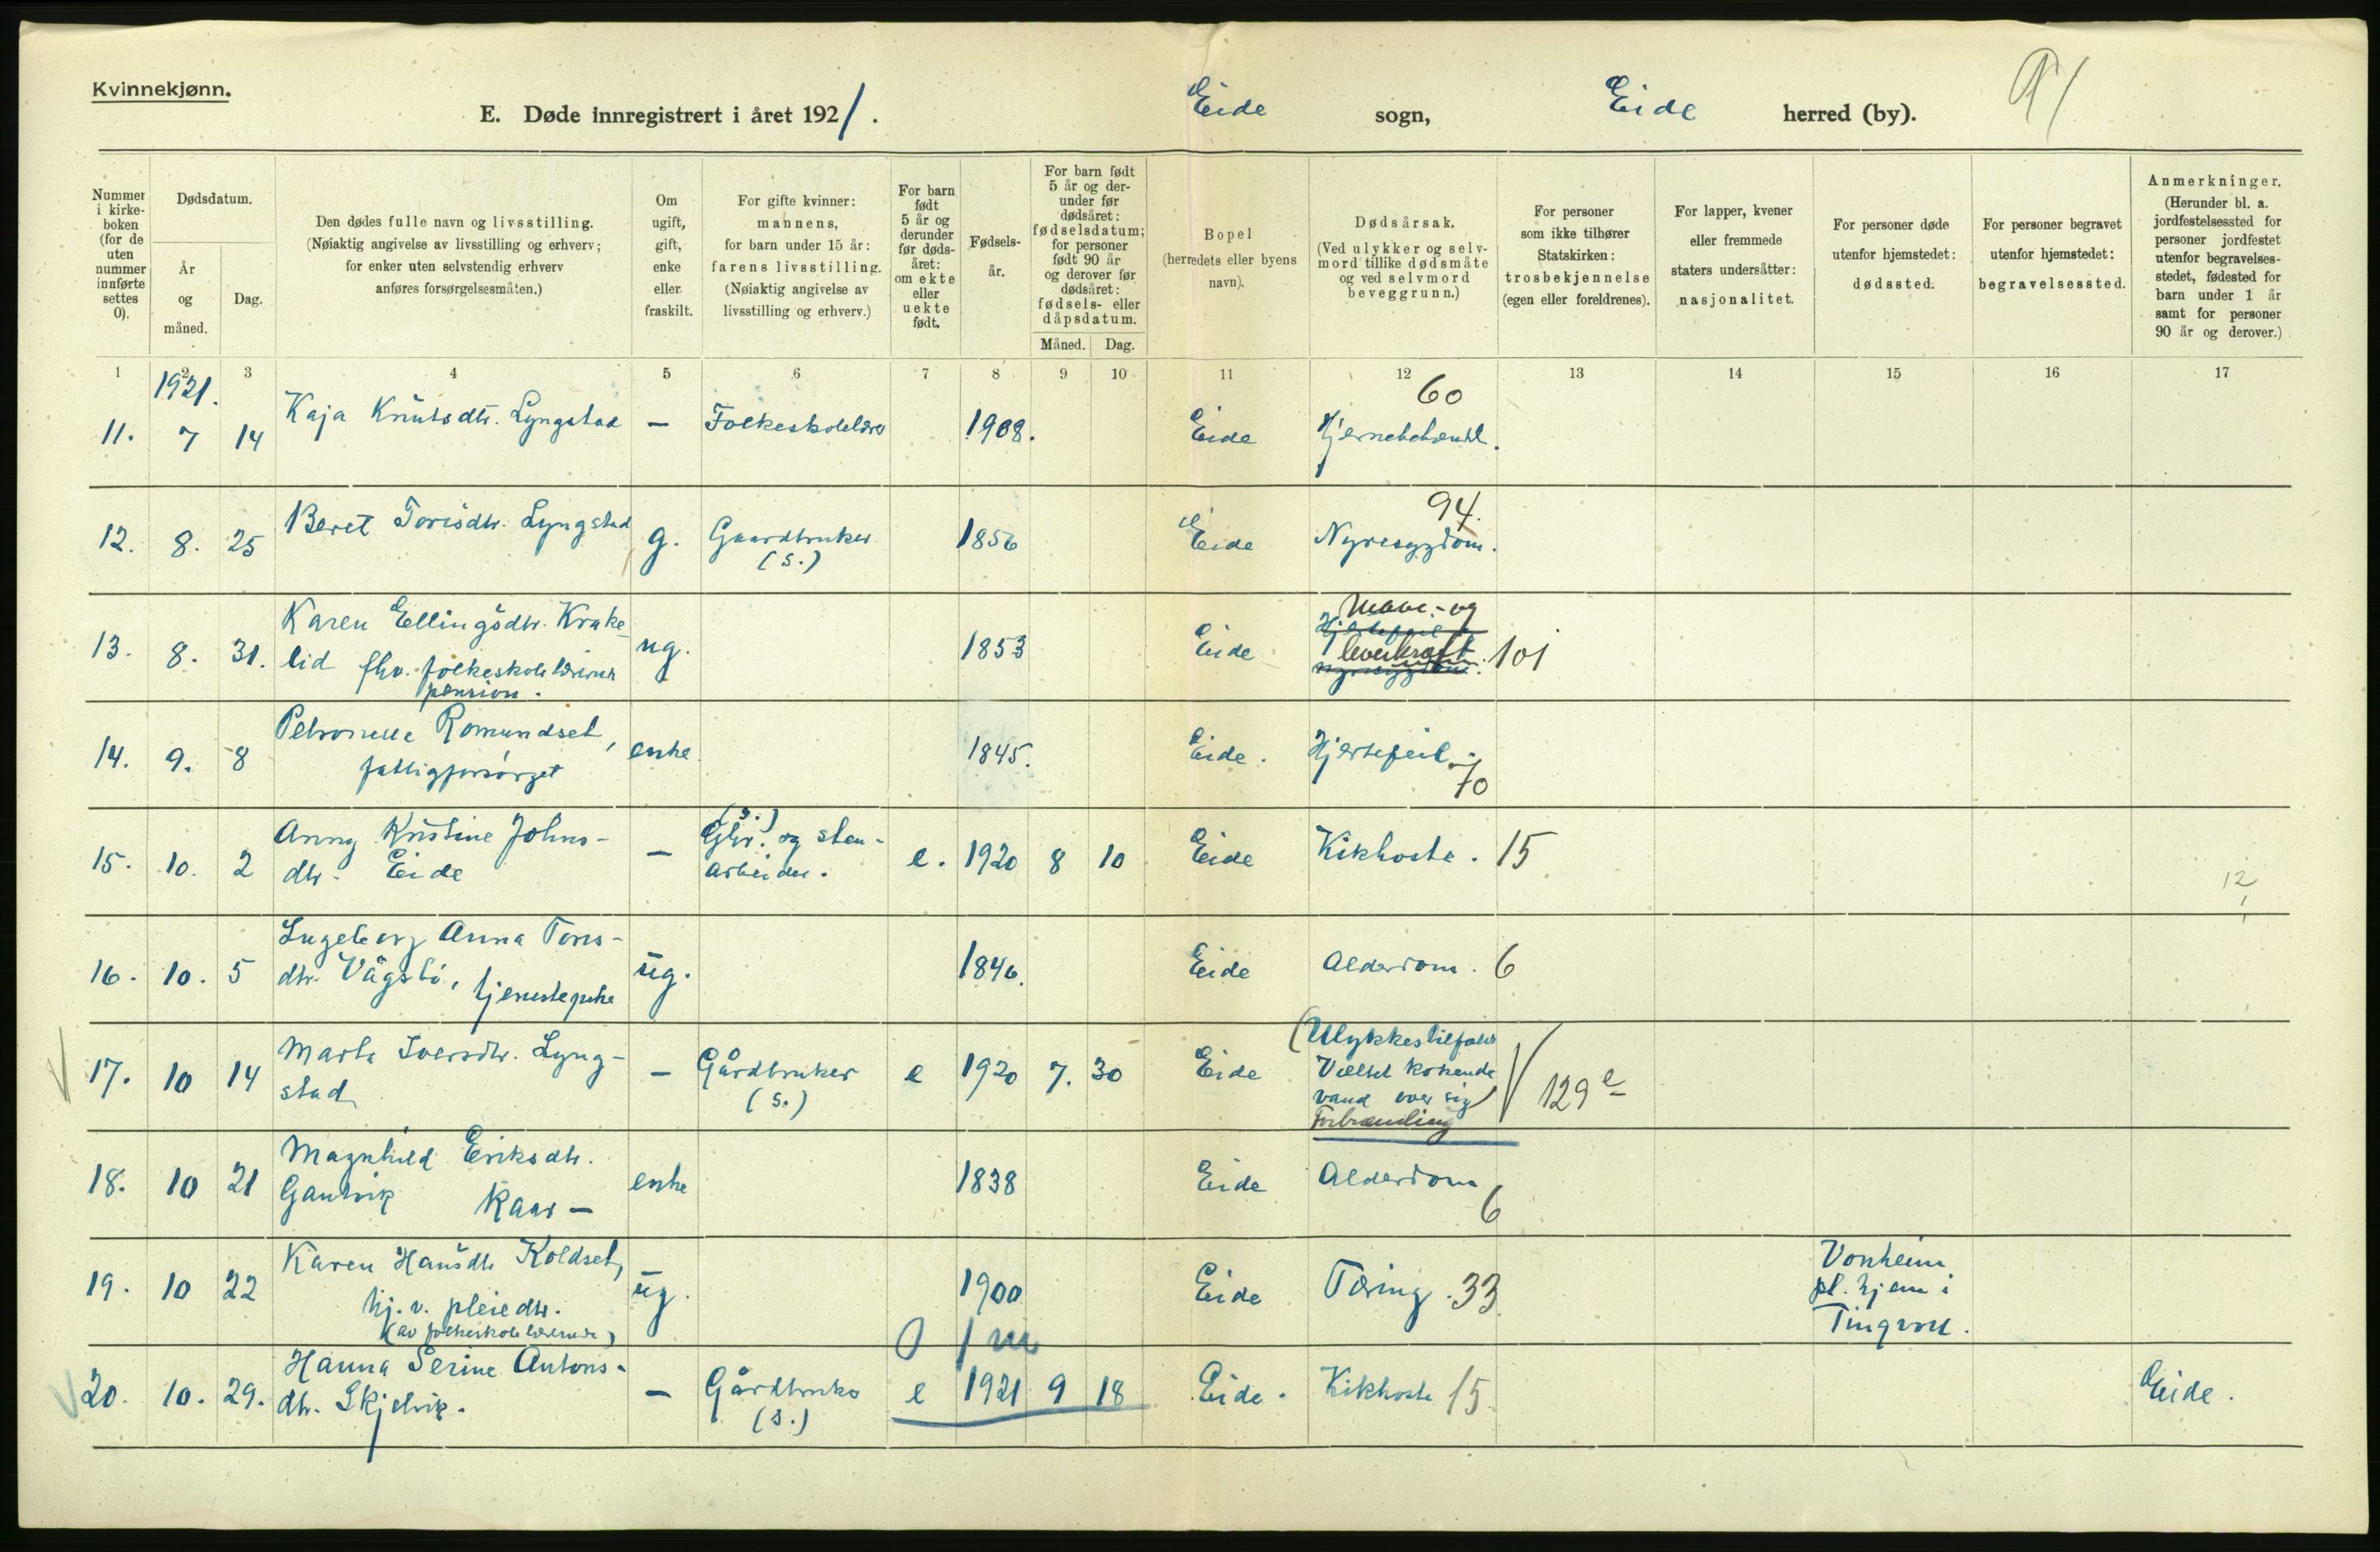 Kvinnekjønn.
E. Døde innregistrert i året 1921. Eide sogn, Eide herred (by). 91
Nummer i kirkeboken (for de uten nummer innførte settes 0).
Dødsdatum.
År og måned.
Dag.
Den dødes fulle navn og livsstilling.
(Nøiaktig angivelse av livsstilling og erhverv;
for enker uten selvstendig erhverv
anføres forsørgelsesmåten.)
Om ugift, gift, enke eller fraskilt.
For gifte kvinner:
mannens,
for barn under 15 år:
farens livsstilling.
(Nøiaktig angivelse av
livsstilling og erhverv.)
For barn født 5 år og derunder før dødsåret: om ekte eller uekte født.
Fødselsår.
For barn født 5 år og derunder før dødsåret: fødselsdatum; for personer født 90 år og derover før dødsåret: fødsels- eller dåpsdatum.
Måned. Dag.
Bopel
(herredets eller byens
navn).
Dødsårsak.
(Ved ulykker og selvmord tillike dødsmåte og ved selvmord beveggrunn.)
For personer
som ikke tilhører
Statskirken:
trosbekjennelse
(egen eller foreldrenes).
For lapper, kvener
eller fremmede
staters undersåtter:
nasjonalitet.
For personer døde
utenfor hjemstedet:
dødssted.
For personer begravet
utenfor hjemstedet:
begravelsessted.
Anmerkninger.
(Herunder bl. a.
jordfestelsessted for
personer jordfestet
utenfor begravelses-
stedet, fødested for
barn under 1 år
samt for personer
90 år og derover.)
1 2 3 4 5 6 7 8 9 10 11 12 13 14 15 16 17
1921.
11. 7 14 Kaja Knutsdtr. Lyngstad — Folkeskolelærer 1908. Eide Hjernebetændt. 60
12. 8. 25 Beret Toresdtr. Lyngstad g. Gaardbruker (s.) 1856 Eide Nyresygdom. 94.
13. 8. 31. Karen Ellingsdtr. Krake-
lid fhv. folkeskolelærerinde
pension. ug. 1853 Eide Hjertefeil
Mave- og
leverkræft 101
nyresygdom.
14. 9. 8 Petronelle Romundset,
fattigforsørget enke 1845. Eide. Hjertefeil. 70
15. 10. 2 Anny Kristine Johns-
dtr. Eide — (s.)
Gbr. og sten-
arbeider. e. 1920 8 10 Eide Kikhoste. 15
12
16. 10. 5 Ingeborg Anna Tores-
dtr. Vågsbø, tjenestepike ug. 1846. Eide Alderdom. 6
17. 10 14 Marta Iversdtr. Lyng-
stad — Gårdbruker (s.) e 1920 7. 30 Eide (Ulykkestilfælde
Væltet kokende
vand over sig)
Forbrænding 129 e
18. 10 21 Magnhild Eriksdtr.
Gautvik Kaar — enke 1838 Eide Alderdom 6
19. 10 22 Karen Hansdtr Koldset,
hj. v. pleiedtr.
(av folkeskolelærerinde) ug. 1900 Eide Tæring. 33 Vonheim
pl. hjem i
Tingvoll.
0 1 m
20. 10. 29. Hanna Serine Antons-
dtr. Skjelvik. — Gårdbruker (s.) e 1921 9 18 Eide. Kikhoste 15 Eide.